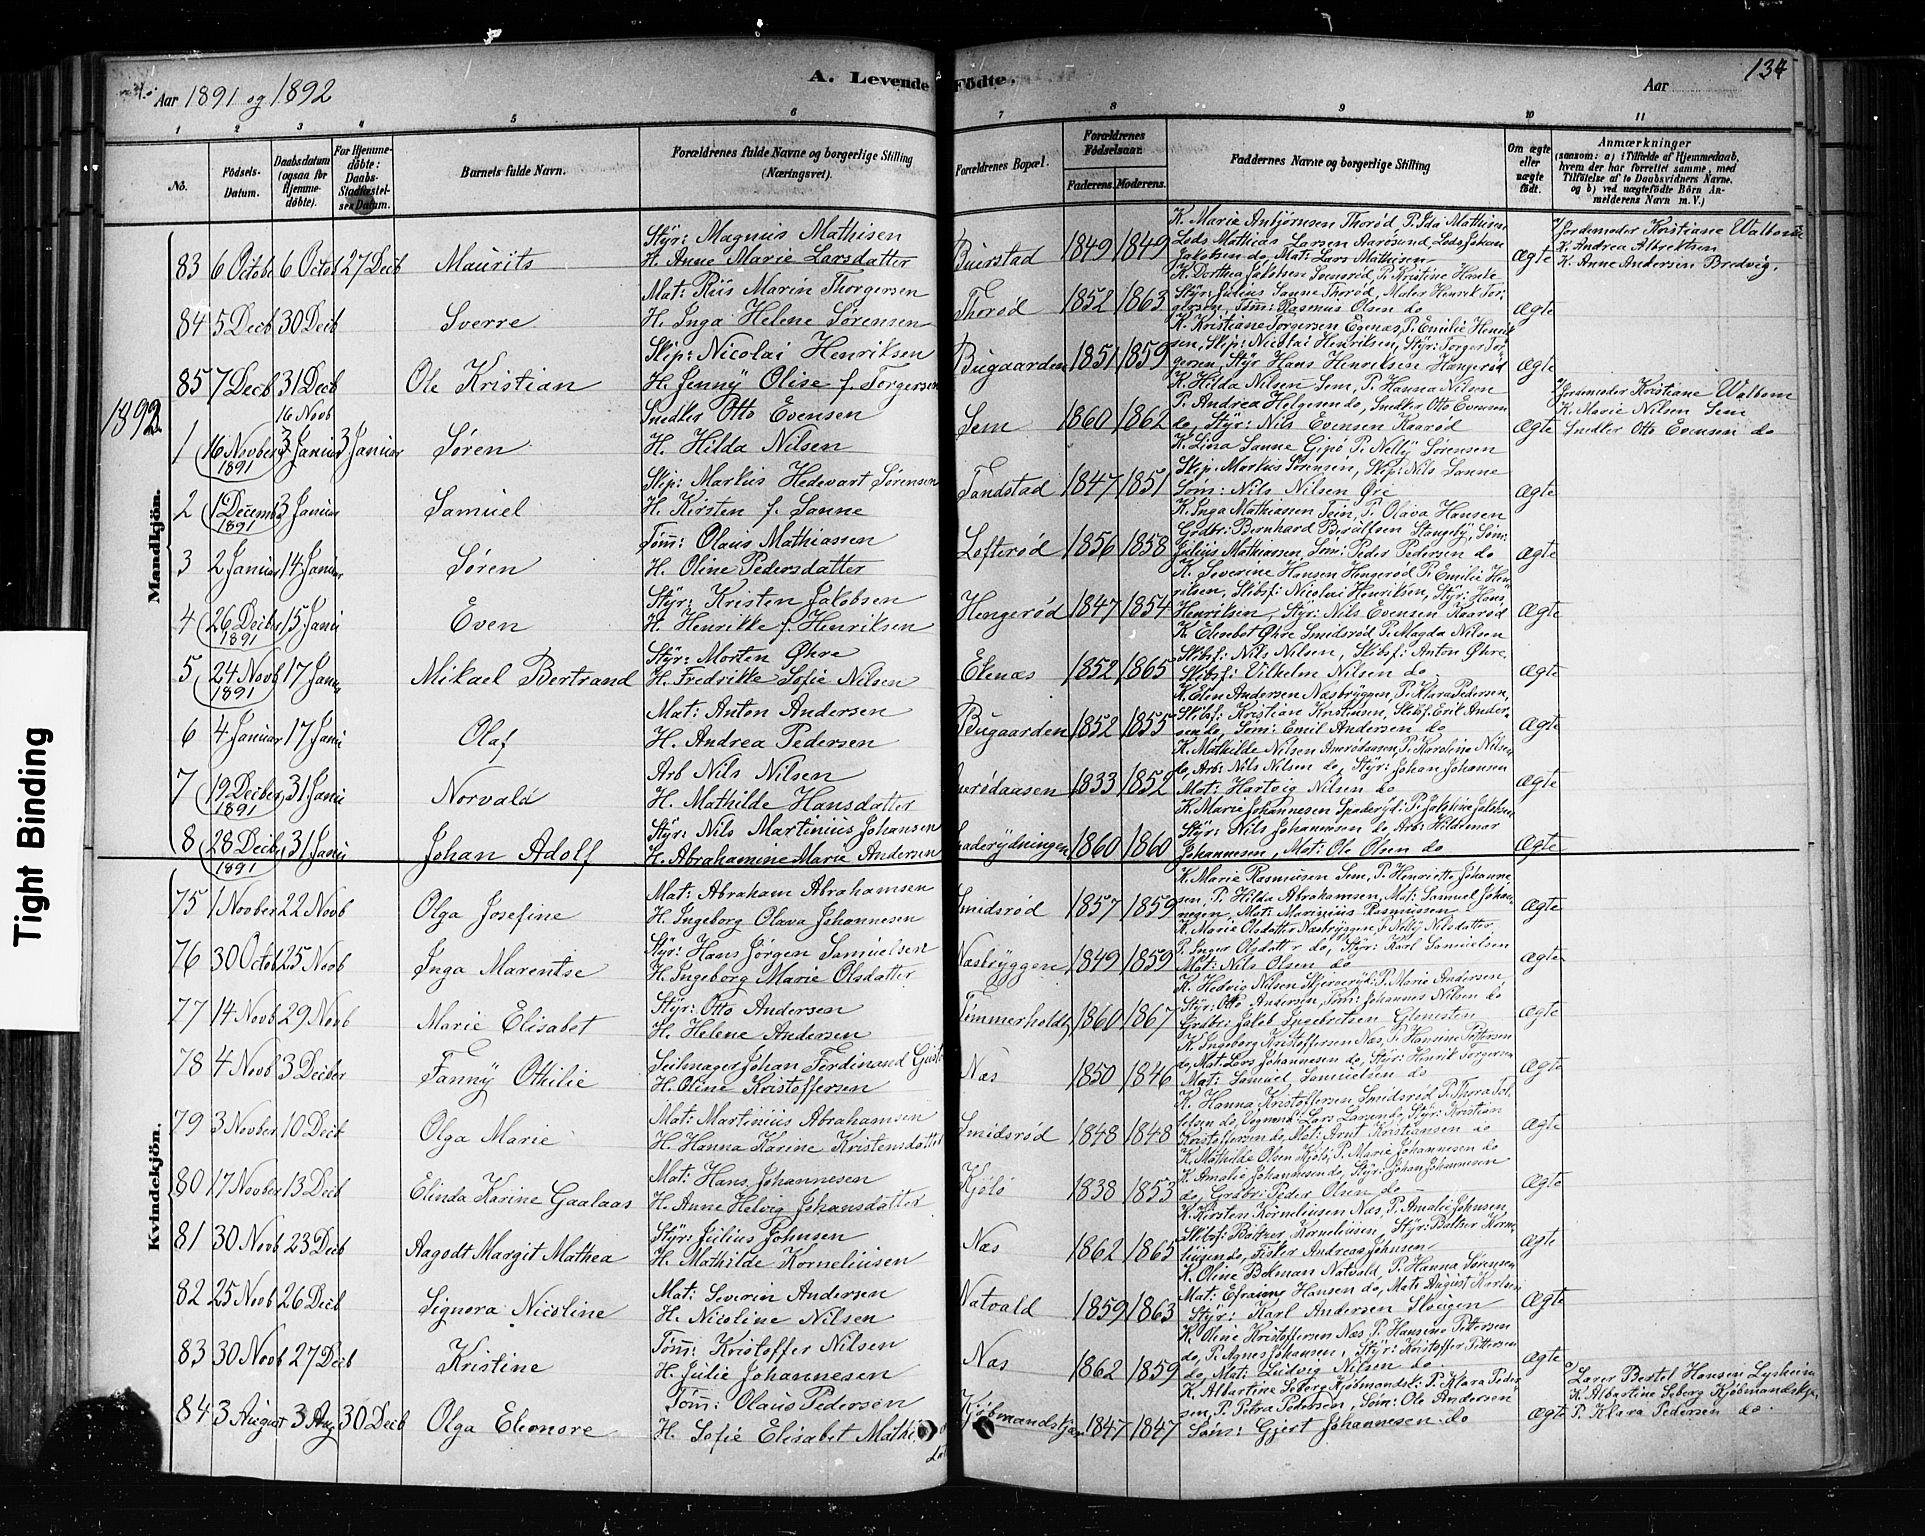 Aar 1891 og 1892
A. Levende Födte.
Aar
134
1 2 3 4 5 6 7 8 9 10 11
No.
Födsels-Datum.
Daabsdatum (ogsaa for Hjemme-döbte).
For Hjemme-döbte: Daabs-Stadfæstel-ses Datum.
Barnets fulde Navn.
Forældrenes fulde Navne og borgerlige Stilling (Næringsvei).
Forældrenes Bopæl.
Forældrenes Födselsaar.
Faderens. Moderens.
Faddernes Navne og borgerlige Stilling
Om ægte eller uægte födt.
Anmærkninger (saasom: a) i Tilfælde af Hjemmedaab, hvem der har forrettet samme, med Tilföielse af to Daabsvidners Navne, og b) ved uægtefödte Börn Anmelderens Navn m. V.)
Mandkjön.
83 6 Octobr 6 Octob 27 Decb Maurits Styr: Magnus Mathisen
H. Anne Marie Larsdatter Buerstad 1849 1849 K. Marie Anbjørnsen Thorød, P. Ida Mathisen
Lods Mathias Larsen Aarøsund, Lods Johan
Jakobsen do, Mat: Lars Mathisen ægte
a) Jordemoder Kristiane Walbom
K. Andrea Albrektsen
K. Anne Andersen Bredvig.
84 5 Decb 30 Decb Sverre Mat: Riis Marin Thorgersen
H. Inga Helene Sørensen Thorød 1852 1863 K. Dorthea Jakobsen P. Kristine Hasle
Styr: Julius Sanne Thorød, Maler Henrik Tor-
gersen, Tøm: Rasmus Olsen do ægte
85 7 Decb 31 Decb Ole Kristian Skip: Nicolai Henriksen
H. Jenny Olise f. Torgersen Bugaarden 1851 1859 K. Kristiane Torgersen Egenæs, P. Emilie Henrik
sen, Skip: Nicolai Henriksen, Styr: Torger Tor-
gersen, Styr Hans Henriksen Hængerød ægte
1892
1 16 Novber 1891 16 Novb 3 Januar 3 Januar Søren Snedker Otto Evensen
H. Hilda Nilsen Sem 1860 1862 K. Hilda Nilsen Sem, P. Hanna Nilsen
P. Andrea Helgesen do, Snedker Otto Evensen
do, Styr: Nils Evensen Kaarød ægte
a) Jordemoder Kristiane Walbom
K. Marie Nilsen Sem
Snedker Otto Evensen do
2 1 Decemb 1891 3 Januar Samuel Skip: Markus Hedevart Sørensen
H. Kirsten f. Sanne Tandstad 1847 1851 K. Lina Sanne Gipø P. Nelly Sørensen
Skip: Markus Sørensen, Skip: Nils Sanne
Søm: Nils Nilsen Øre ægte
3 2 Januar 14 Januar Søren Tøm: Olaus Mathiassen
H. Oline Pedersdatter Lofterød 1856 1858 K. Inga Mathiassen Tein, P. Olava Hansen
Grdbr: Bernhard Stangeby, Søm:
Julius Mathiassen, Søm: Peder Pedersen do ægte
4 26 Decbr 1891 15 Janu Even Styr: Kristen Jakobsen
H. Henrikke f. Henriksen Hengerød 1847 1854 K. Severine Hansen Hengerød P. Emilie Hen
riksen, Skibsf: Nicolai Henriksen, Styr: Hans
Henriksen, Styr: Nils Evensen Kaarød ægte
5 24 Novb 1891 17 Janu Mikael Bertrand Styr: Morten Øhre
H. Fredrikke Sofie Nilsen Ekenæs 1852 1865 K. Elisebet Øhre Smidsrød P. Magda Nilsen
Skibsf: Nils Nilsen, Skibsf: Anton Øhre,
Skibsf: Vilhelm Nilsen do ægte
6 4 Januar 17 Janu Olaf Mat: Anton Andersen
H. Andrea Pedersen Bugaarden 1852 1855 K. Elen Andersen Næsbryggen, P. Klara Pedersen,
Skibsf: Kristian Kristiansen, Skibsf: Erik Ander-
sen do, Søm: Emil Andersen do ægte
7 19 Decber 1891 31 Janu Norvald Arb Nils Nilsen
H. Mathilde Hansdatter 1833 1852 K. Mathilde Nilsen Aarødaasen, P. Karoline Nilsen
do, Arb: Nils Nilsen do, Styr: Johan Johansen
Mat: Hartvig Nilsen do ægte
8 28 Decbr 1891 31 Janu Johan Adolf Styr: Nils Martinius Johansen
H. Abrahamine Marie Andersen 1860 1860 K. Marie Johannesen P. Jakobine Jakobsen
Styr: Nils Johannesen do Arb: Hildemar
Johannesen, Mat: Ole Olsen do ægte
Kvindekjön.
75 1 Novber 22 Novb Olga Josefine Mat: Abraham Abrahamsen
H. Ingeborg Olava Johannesen Smidsrød 1857 1859 K. Marie Rasmusen Sem, P. Henriette Johanne
sen, P. Hilda Abrahamsen, Mat: Samuel Johan-
nesen, Mat: Marinius Rasmussen ægte
76 30 Octob 25 Novb Inga Marentse Styr: Hans Jørgen Samuelsen
H. Ingeborg Marie Olsdatter Næsbryggen 1849 1859 K. Marie Olsdatter Næsbryggen, P. Nelly Nilsdatter
P. Inger Olsdatter do, Styr: Karl Samuelsen
Mat: Nils Olsen do ægte
77 14 Novb 29 Novb Marie Elisabet Styr: Otto Andersen
H. Helene Andersen Timmerholdt 1860 1867 K. Hedvig Nilsen P. Marie Andersen
Styr: Otto Andersen, Tøm: Johannes Nilsen do
Grdbr: Jakob Ingebritsen ægte
78 4 Novb 3 Decber Fanny Othilie Seilmager Johan Ferdinand
H. Oline Kristoffersen Næs 1850 1846 K. Ingeborg Kristoffersen Næs, P. Hansine Pettersen
do, Mat: Lars Johannesen do, Styr: Henrik Torgersen
Mat: Samuel Samuelsen do ægte
79 3 Novber 10 Decb Olga Marie Mat: Martinius Abrahamsen
H. Hanna Karine Kristensdatter Smidsrød 1848 1848 K. Hanna Kristoffersen Smidsrød P. Thora
do, Lars Larsen do, Styr: Kristian
Kristoffersen do, Mat: Arnt Kristiansen do ægte
80 17 Novber 13 Decb Elinda Karine Gaalaas Mat: Hans Johannesen
H. Anne Helvig Johansdatter Kjølø 1838 1853 K. Mathilde Olsen Kjølø, P. Marie Johannesen do
K. Amalie Johannesen do, Styr: Johan Johannesen
do, Grdbr: Peder Olsen do ægte
81 30 Novb 23 Decb Aagodt Margit Mathea Styr: Julius Johnsen
H. Mathilde Korneliusen Næs 1862 1865 K. Kirsten Korneliusen Næs, P. Amalie Johnsen,
Skibsf: Baltzer Korneliusen, Styr: Baltser Korne-
liusen do, Fisker Andreas Johnsen ægte
82 25 Novb 26 Decb Signora Nicoline Mat: Severin Andersen
H. Nicoline Nilsen Natvald 1859 1863 K. Oline Bekman Natvald, P. Hanna Sørensen
Mat: Efraim Hansen do, Mat: August Karlsen
Styr: Karl Andersen Skougen ægte
83 30 Novb 27 Decb Kristine Tøm: Kristoffer Nilsen
H. Julie Johannesen Næs 1862 1859 K. Oline Kristoffersen Næs P. Hansine Pettersen
do, P. Agnes Johansen, Styr: Kristoffer Pettersen
do, Mat: Ludvig Nilsen do ægte
84 3 August 3 Aug 30 Decb Olga Eleonore Tøm: Olaus Pedersen
H. Sofie Elisabet Kjøbmandskjær 1847 1847 K. Albartine Seberg Kjøbmandsk: P. Klara Peder
sen, P. Petra Pedersen, Søm: Ole Andersen
Søm: Gjert Johannesen do ægte
a) Lærer Bertel Hansen Lysheim
K. Albartine Seberg Kjøbmandskjæ,
P. Klara Pedersen do.
Tight Binding